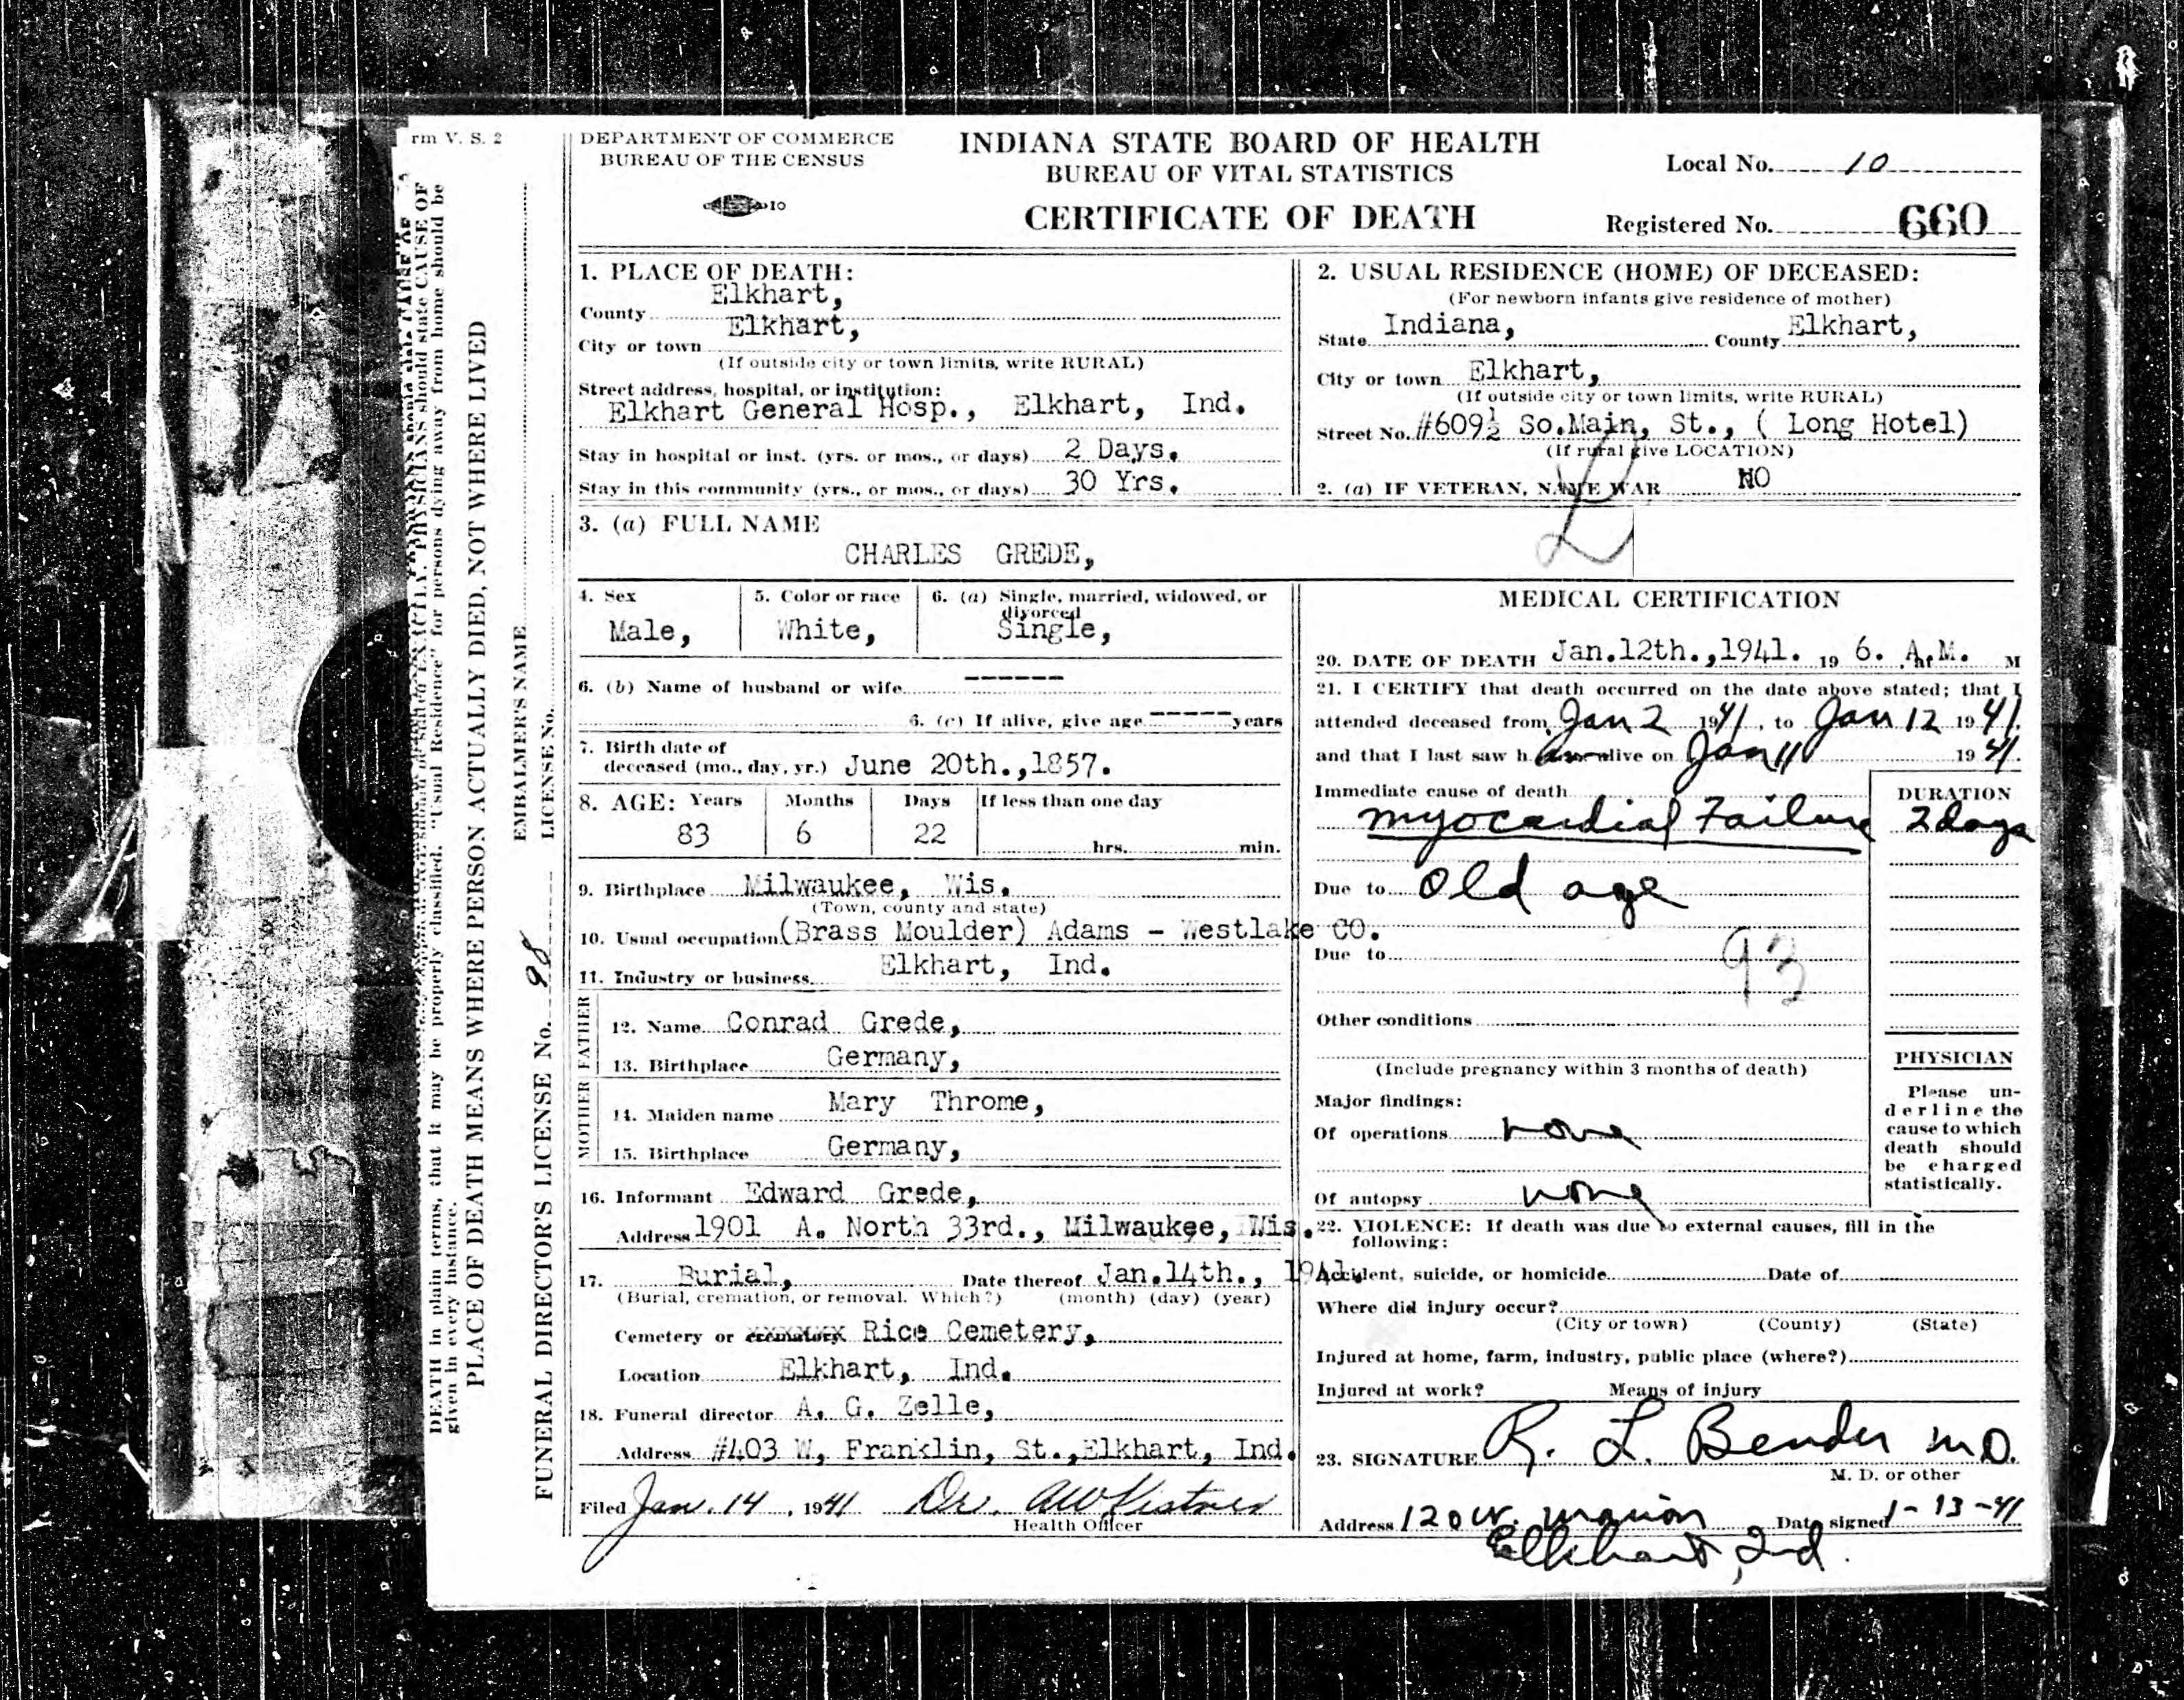 rm V. S. 2
DEATH in plain terms, that it may be properly classified. "Usual Residence" for persons dying away from home should be
given in every instance.
PLACE OF DEATH MEANS WHERE PERSON ACTUALLY DIED, NOT WHERE LIVED
EMBALMER'S NAME
LICENSE No.
FUNERAL DIRECTOR'S LICENSE No. 98
DEPARTMENT OF COMMERCE
BUREAU OF THE CENSUS
10
INDIANA STATE BOARD OF HEALTH
BUREAU OF VITAL STATISTICS
CERTIFICATE OF DEATH
Local No. 10
Registered No. 660
1. PLACE OF DEATH:
County Elkhart,
City or town Elkhart,
(If outside city or town limits, write RURAL)
Street address, hospital, or institution:
Elkhart General Hosp., Elkhart, Ind.
Stay in hospital or inst. (yrs. or mos., or days) 2 Days.
Stay in this community (yrs., or mos., or days) 30 Yrs.
2. USUAL RESIDENCE (HOME) OF DECEASED:
(For newborn infants give residence of mother)
State Indiana, County Elkhart,
City or town Elkhart,
(If outside city or town limits, write RURAL)
Street No. #609½ So.Main, St., ( Long Hotel)
(If rural give LOCATION)
2. (a) IF VETERAN, NAME WAR NO
3. (a) FULL NAME
CHARLES GREDE,
4. Sex
Male,
5. Color or race
White,
6. (a) Single, married, widowed, or
divorced
Single,
6. (b) Name of husband or wife ------
6. (c) If alive, give age ----- years
7. Birth date of
deceased (mo., day, yr.) June 20th.,1857.
8. AGE: Years Months Days If less than one day
83 6 22 hrs. min.
9. Birthplace Milwaukee, Wis.
(Town, county and state)
10. Usual occupation (Brass Moulder) Adams - Westlake CO.
11. Industry or business Elkhart, Ind.
FATHER
12. Name Conrad Grede,
13. Birthplace Germany,
MOTHER
14. Maiden name Mary Throme,
15. Birthplace Germany,
16. Informant Edward Grede,
Address 1901 A. North 33rd., Milwaukee, Wis.
17. Burial, Date thereof Jan.14th., 1941.
(Burial, cremation, or removal. Which?) (month) (day) (year)
Cemetery or crematory Rice Cemetery,
Location Elkhart, Ind.
18. Funeral director A. G. Zelle,
Address #403 W, Franklin, St.,Elkhart, Ind.
Filed Jan. 14, 1941 Dr. AW Kistner
Health Officer
MEDICAL CERTIFICATION
20. DATE OF DEATH Jan.12th.,1941. 19 6. A.M. M
21. I CERTIFY that death occurred on the date above stated; that I
attended deceased from Jan 2 1941, to Jan 12 1941.
and that I last saw h alive on Jan 11 1941.
Immediate cause of death
DURATION
myocardial Failure 2 days
Due to Old age
Due to
93
Other conditions
(Include pregnancy within 3 months of death)
Major findings:
Of operations none
Of autopsy none
PHYSICIAN
Please un-
derline the
cause to which
death should
be charged
statistically.
22. VIOLENCE: If death was due to external causes, fill in the
following:
Accident, suicide, or homicide Date of
Where did injury occur?
(City or town) (County) (State)
Injured at home, farm, industry, public place (where?)
Injured at work? Means of injury
23. SIGNATURE R. L. Bender M.D.
M. D. or other
Address 120 W. Marion Date signed 1-13-41
Elkhart, Ind.